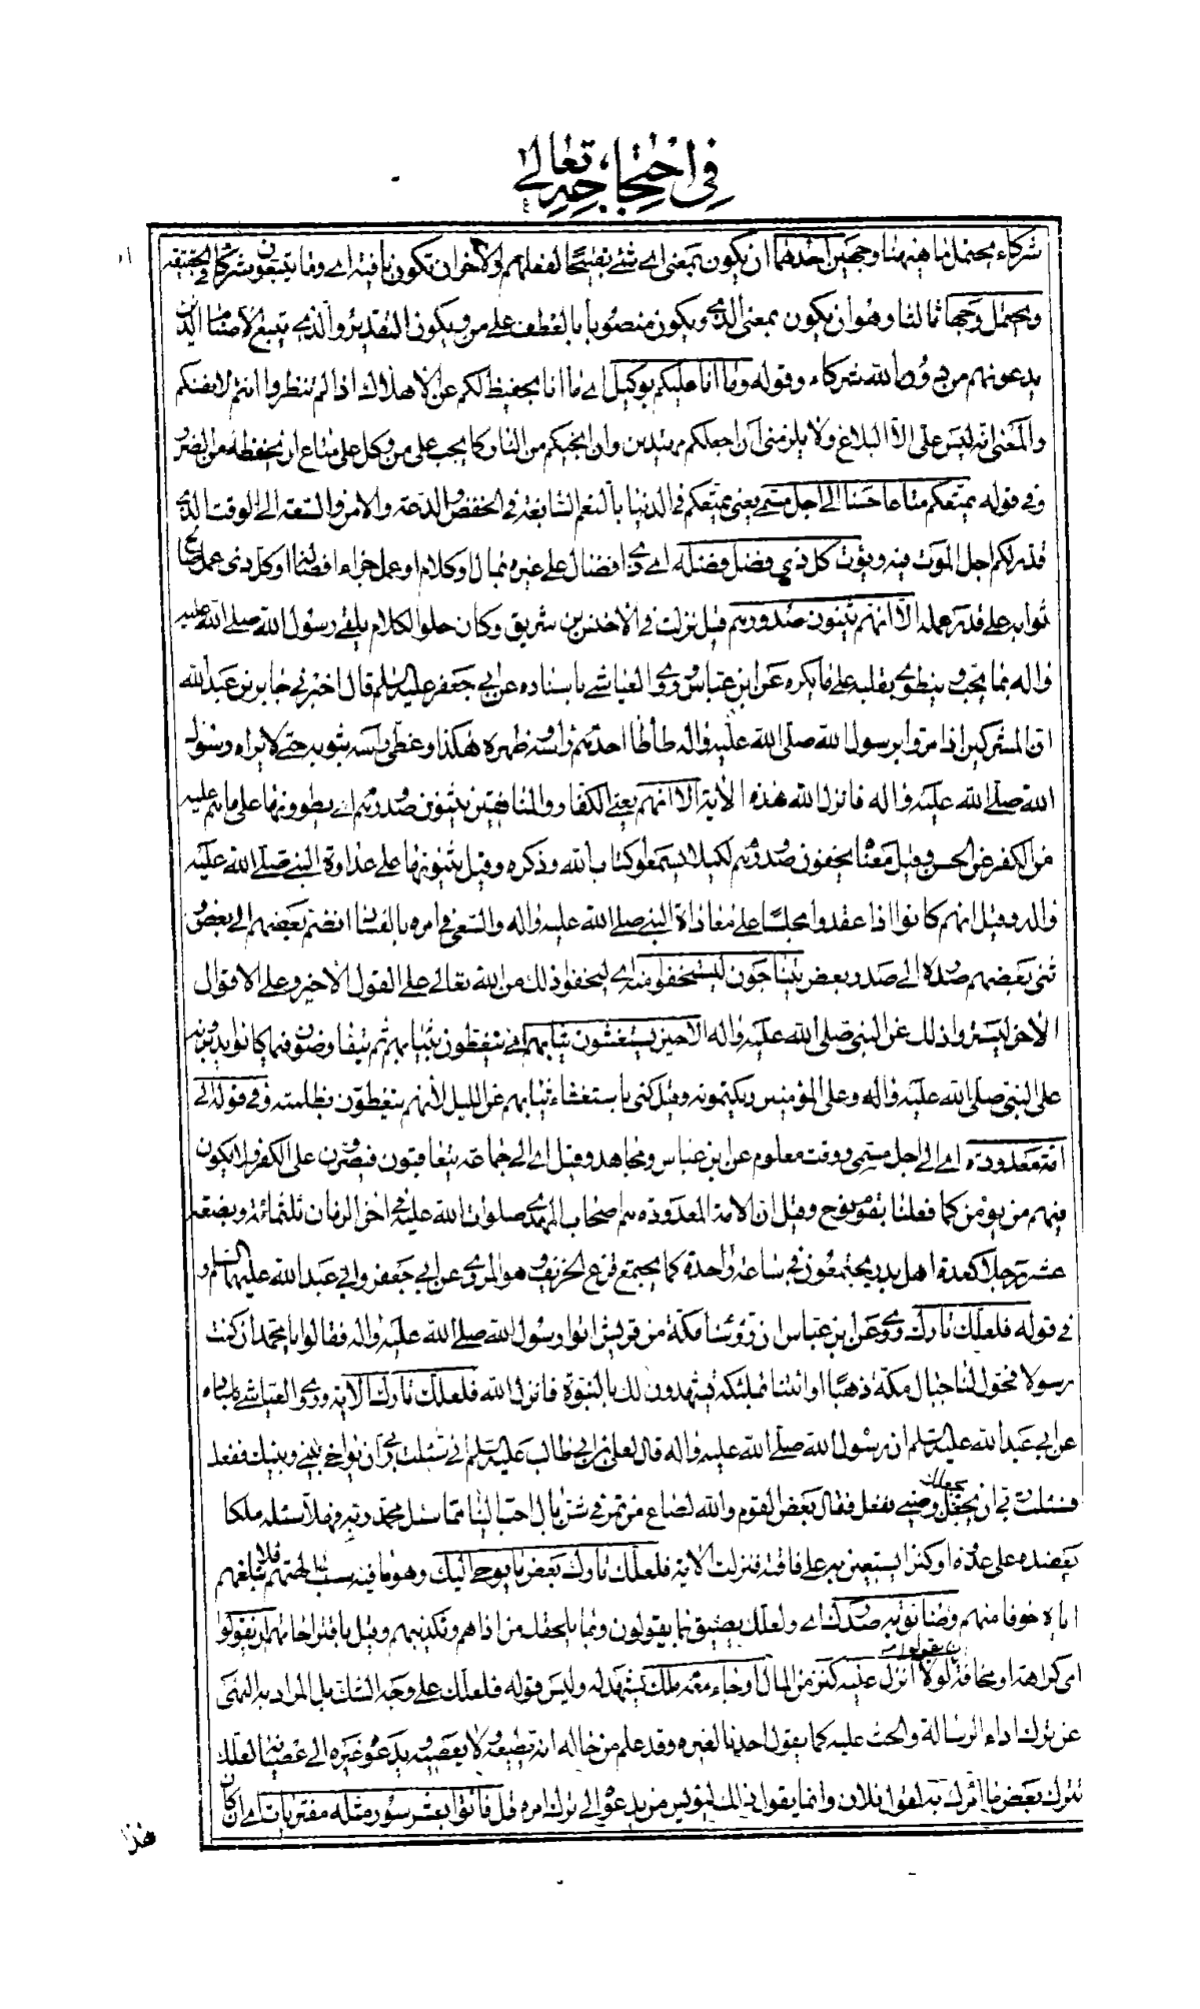 في احتجاجه تعالى
شركاء يحتمل ما هيهنا وجهين احدهما ان يكون بمعنى اي شئ تقبيحا لفعلهم والاخر ان تكون نافية اي وما يتبعون شركاء في الحقيقة
ويحتمل وجها ثالثا وهو ان يكون بمعنى الذي ويكون منصوبا بالعطف على من ويكون التقدير والذي يتبع الاصنام الذين
يدعونهم من دون الله شركاء وقوله وما انا عليكم بوكيل اي ما انا بحفيظ لكم عن الاهلاك اذا لم تنظروا انتم لانفسكم
والمعنى انه ليس على الا البلاغ ولا يلزمني ان اجعلكم مهتدين وان انجيكم من النار كما يجب على من وكل على متاع ان يحفظه من الضرر
وفي قوله يمتعكم متاعا حسنا الى اجل مسمى يعني يمتعكم في الدنيا بالنعم السابغة في الخفض والدعة والامن والسعة الى الوقت الذي
قدر لكم اجل الموت فيه ويؤت كل ذي فضل فضله اي ذي افضال على غيره بمال او كلام او عمل جزاء افضاله او كل ذي عمل صالح
ثوابه على قدر عمله الا انهم يثنون صدورهم قيل نزلت في الاخنس بن شريق وكان حلو الكلام يلقى رسول الله صلى الله عليه
واله بما يحب وينطوي بقلبه على ما يكره عن ابن عباس وروى العياشي باسناده عن ابي جعفر عليه السلم قال اخبرني جابر بن عبد الله
ان المشركين اذا مروا برسول الله صلى الله عليه واله طأطأ احدهم رأسه وظهره هكذا وغطى رأسه بثوبه حتى لا يراه رسول
الله صلى الله عليه واله فانزل الله هذه الاية الا انهم يعني الكفار والمنافقين يثنون صدورهم اي يطوونها على ما هم عليه
من الكفر عن الحسن وقيل معناه يحنون صدورهم لكيلا يستمعوا كتاب الله وذكره وقيل يثنونها على عداوة النبي صلى الله عليه
واله وقيل انهم كانوا اذا عقدوا مجلسا على معاداة النبي صلى الله عليه واله والسعي في امره بالفساد انضم بعضهم الى بعض و
ثنى بعضهم صدره الى صدر بعض يتناجون ليستخفوا منه اي ليخفوا ذلك من الله تعالى على القول الاخير وعلى الاقوال
الاخر ليستروا ذلك عن النبي صلى الله عليه واله الا حين يستغشون ثيابهم اي يتغطون بثيابهم ثم يتفاوضون فيما كانوا يدبرونه
على النبي صلى الله عليه واله وعلى المؤمنين ويكتمونه وقيل كنى باستغشاء ثيابهم عن الليل لانهم يتغطون بظلمته وفي قوله الى
امة معدودة اي الى اجل مسمى ووقت معلوم عن ابن عباس ومجاهد وقيل اي الى جماعة يتعاقبون فيصرون على الكفر ولا يكون
فيهم من يؤمن كما فعلنا بقوم نوح وقيل ان الامة المعدودة هم اصحاب المهدي صلوات الله عليه في اخر الزمان ثلثمائة وبضعة
عشر رجلا كعدة اهل بدر يجتمعون في ساعة واحدة كما يجتمع قزع الخريف وهو المروي عن ابي جعفر وابي عبد الله عليهما السلم و
في قوله فلعلك تارك روي عن ابن عباس ان رؤساء مكة من قريش اتوا رسول الله صلى الله عليه واله فقالوا يا محمد ان كنت
رسولا فحول لنا جبال مكة ذهبا او ائتنا بملئكة يشهدون لك بالنبوة فانزل الله فلعلك تارك الاية وروى العياشي باسناده
عن ابي عبد الله عليه السلم ان رسول الله صلى الله عليه واله قال لعلي بن ابي طالب عليه السلم اني سئلت ربي ان يواخي بيني وبينك ففعل
فسئلت ربي ان يجعلك وصيي ففعل فقال بعض القوم والله لصاع من تمر في شن بال احب الينا مما سئل محمد ربه فهلا سئله ملكا
يعضده على عدوه او كنزا يستعين به على فاقته فنزلت الاية فلعلك تارك بعض ما يوحى اليك وهو ما فيه سب الهتهم فلا تبلغهم
اياه خوفا منهم وضائق به صدرك اي ولعلك يضيق مما يقولون وبما يلحقك من اذاهم وتكذيبهم وقيل باقتراحاتهم ان يقولوا
اي كراهة او مخافة ان يقولوا لولا انزل عليه كنز من المال او جاء معه ملك يشهد له وليس قوله فلعلك على وجه الشك بل المراد به النهي
عن ترك اداء الرسالة والحث عليه كما يقول احدنا لغيره وقد علم من حاله انه يطيعه ولا يعصيه ويدعوه غيره الى عصيانه لعلك
تترك بعض ما امرك به لقول فلان وانما يقول ذلك ليؤيس من يدعوه الى ترك امره قل فاتوا بعشر سور مثله مفتريات اي ان كان
هذا